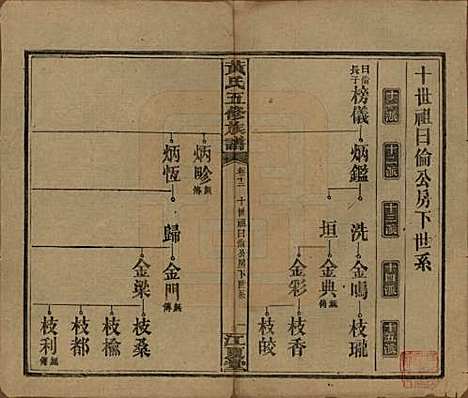 十世祖曰倫公房下世系
十一派
十二派
十三派
十四派
十五派
曰倫長子
榜儀
炳鑑
洗
金鳴
枝瓏
垣
金典
無傳
金彩
枝香
枝皎
黃氏五修族譜
卷十二
十世祖曰倫公房下世系
一
江夏堂
炳畛
無傳
炳恆
歸
金門
無傳
金梁
枝桑
枝檢
枝都
枝利
無傳